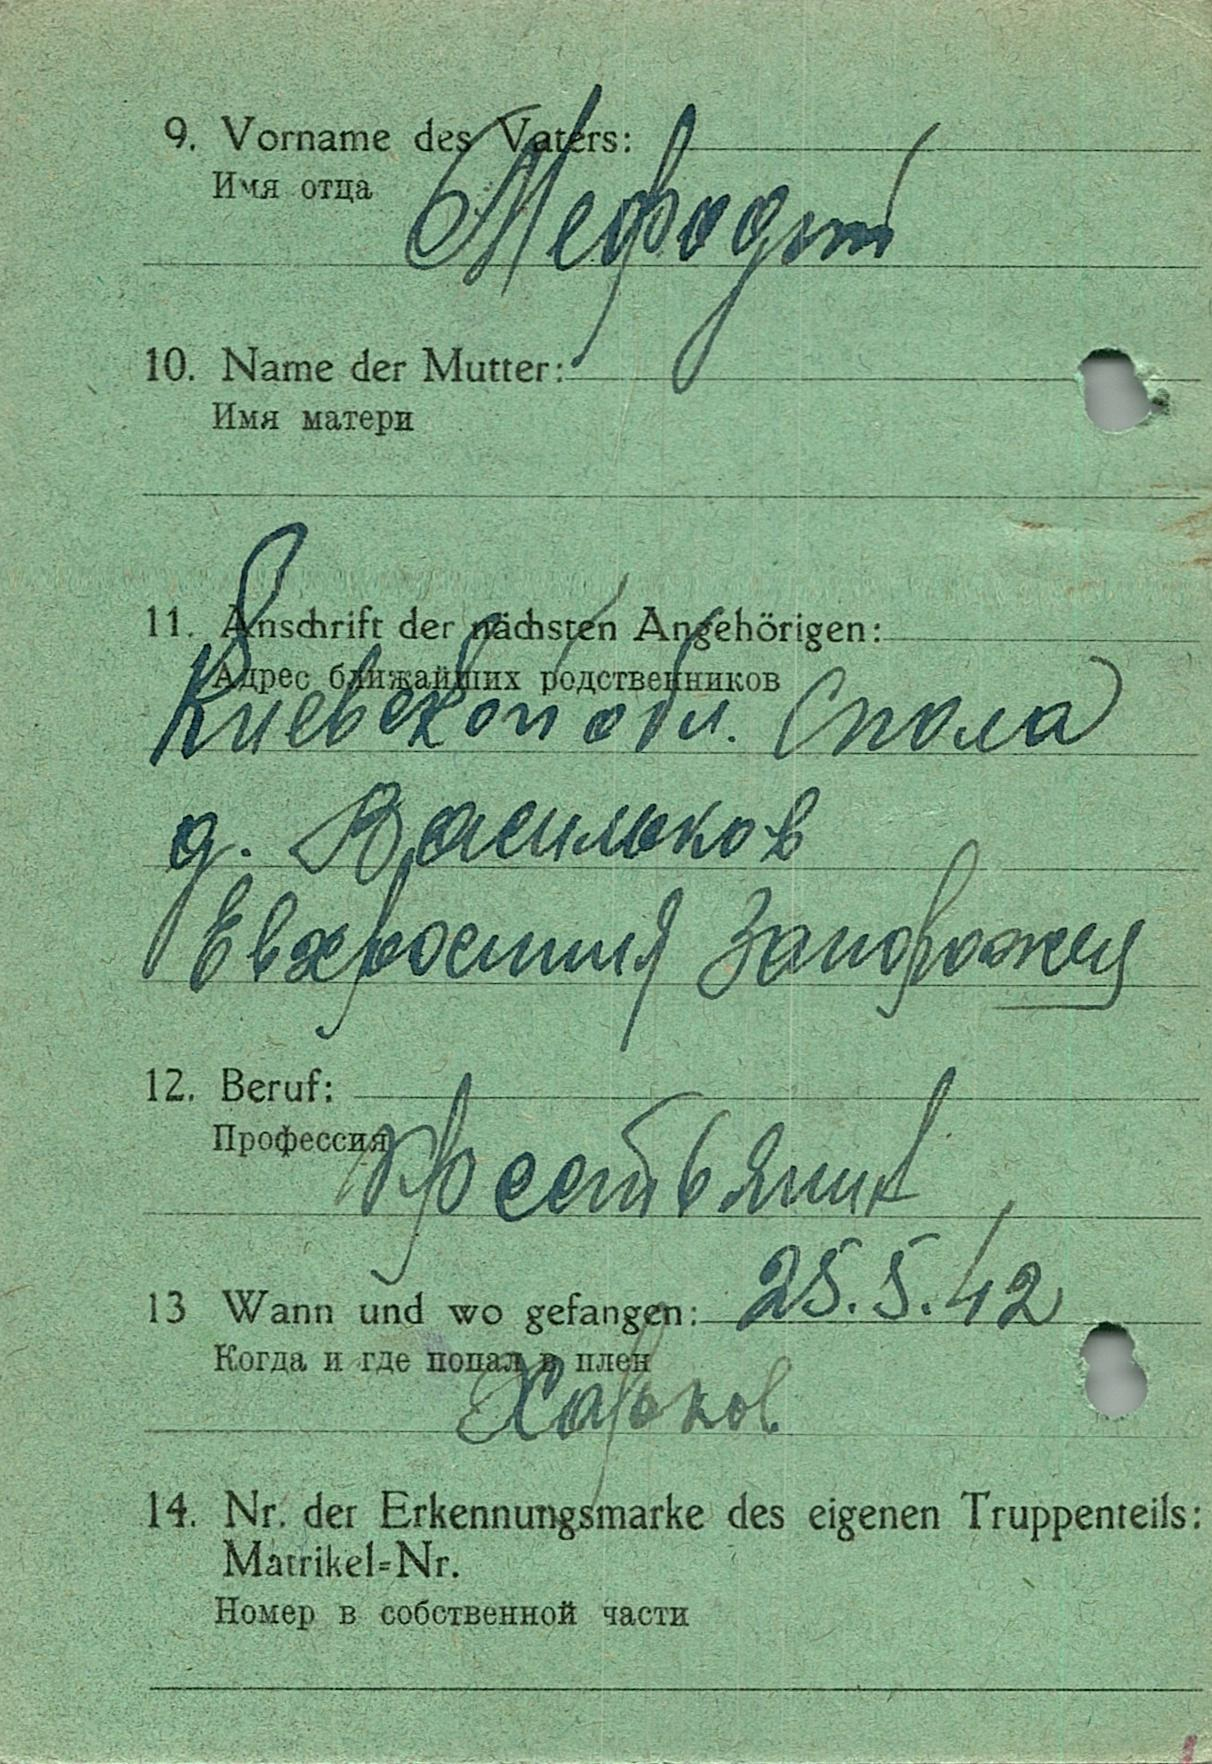 9. Vorname des Vaters:
Имя отца
Мефодий
10. Name der Mutter:
Имя матери
11. Anschrift der nächsten Angehörigen:
Адрес ближайших родственников
Киевской обл. Шпола
д. Васильков
Евхросиния Запорожец
12. Beruf:
Профессия
Крестьянин
13 Wann und wo gefangen: 25.5.42
Когда и где попал в плен
Харьков
14. Nr. der Erkennungsmarke des eigenen Truppenteils:
Matrikel=Nr.
Номер в собственной части